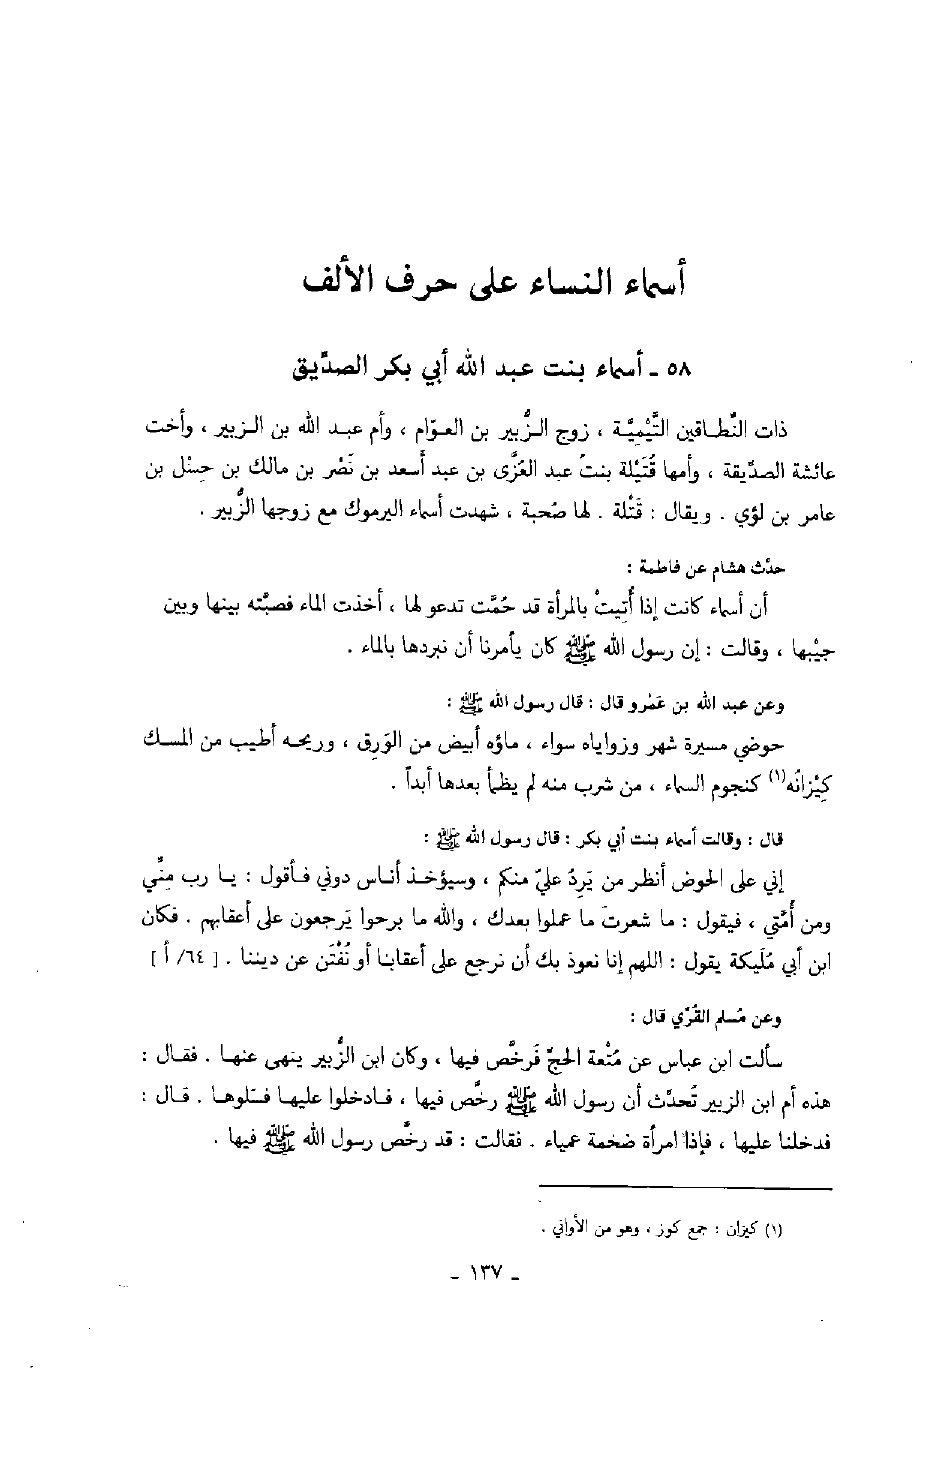 أسماء النساء على حرف الألف
٥٨ - أسماء بنت عبد الله أبي بكر الصدّيق
ذات النُّطاقين التَّيْمِيَّة ، زوج الزُّبير بن العوّام ، وأم عبد الله بن الزبير ، وأخت
عائشة الصدّيقة ، وأمها قُتَيْلة بنتُ عبد العُزَّى بن عبد أسعد بن نَصْر بن مالك بن حِسْل بن
عامر بن لؤي . ويقال : قَتْلة . لها صُحبة ، شهدت أسماء اليرموك مع زوجها الزُّبير .
حدّث هشام عن فاطمة :
أن أسماء كانت إذا أُتيتْ بالمرأة قد حُمَّت تدعو لها ، أخذت الماء فصبّته بينها وبين
جيْبها ، وقالت : إن رسول الله ﷺ كان يأمرنا أن نبردها بالماء .
وعن عبد الله بن عَمْرو قال : قال رسول الله ﷺ :
حوضي مسيرة شهر وزواياه سواء ، ماؤه أبيض من الوَرِق ، وريحه أطيب من المسك
كِيْزانُه(١) كنجوم السماء ، من شرب منه لم يظمأ بعدها أبداً .
قال : وقالت أسماء بنت أبي بكر : قال رسول الله ﷺ :
إني على الحوض أنظر من يَرِدُ عليّ منكم ، وسيؤخذ أناس دوني فأقول : يا رب مِنّي
ومن أُمّتي ، فيقول : ما شعرتَ ما عملوا بعدك ، والله ما برحوا يَرجعون على أعقابهم . فكان
ابن أبي مُلَيكة يقول : اللهم إنا نعوذ بك أن نرجع على أعقابنا أو نُفْتَن عن ديننا . [ ٦٤/ أ ]
وعن مُسلم القُرّي قال :
سألت ابن عباس عن مُتْعة الحجّ فَرخَّص فيها ، وكان ابن الزُّبير ينهى عنها . فقال :
هذه أم ابن الزبير تُحدّث أن رسول الله ﷺ رخَّص فيها ، فادخلوا عليها فسَلوها . قال :
فدخلنا عليها ، فإذا امرأة ضخمة عمياء . فقالت : قد رخَّص رسول الله ﷺ فيها .
(١) كيزان : جمع كوز ، وهو من الأواني .
- ١٣٧ -